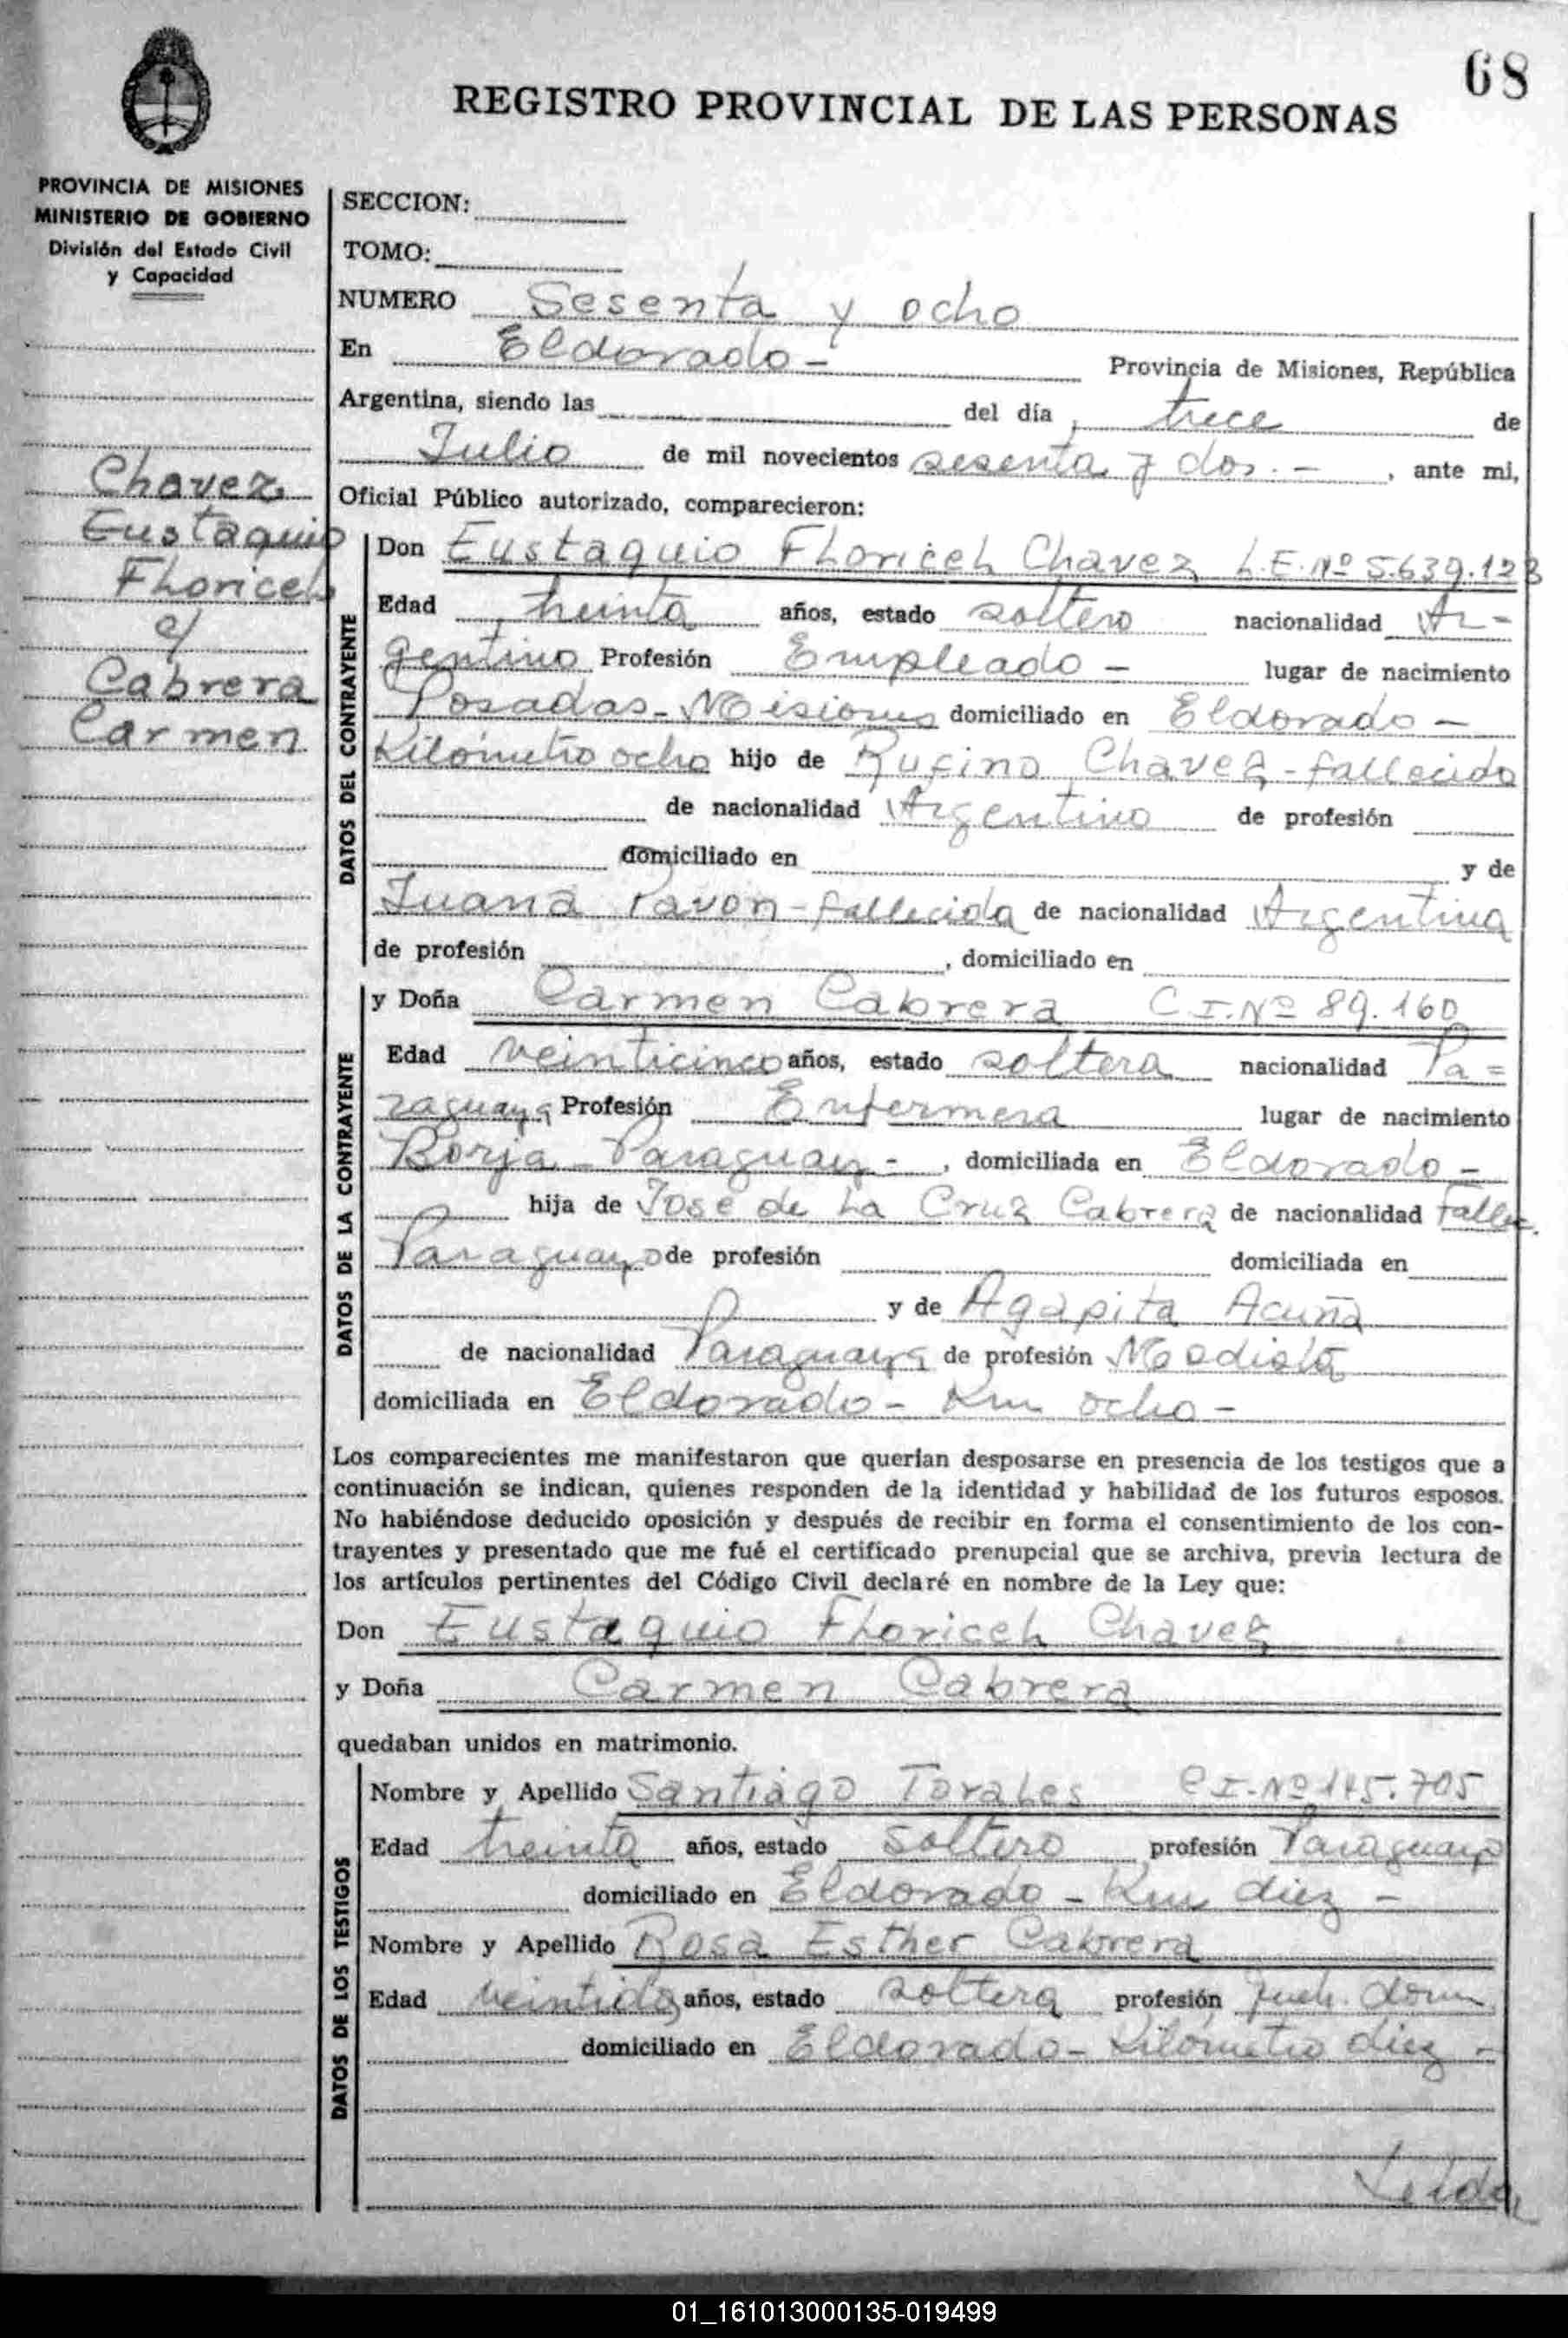 68
REGISTRO PROVINCIAL DE LAS PERSONAS
PROVINCIA DE MISIONES
MINISTERIO DE GOBIERNO
División del Estado Civil
y Capacidad
SECCION:
TOMO:
NUMERO Sesenta y ocho
En Eldorado - Provincia de Misiones, República
Argentina, siendo las del día trece de
Julio de mil novecientos sesenta y dos. - , ante mi,
Oficial Público autorizado, comparecieron:
Chavez
Eustaquio
Floricel
c/
Cabrera
Carmen
DATOS DEL CONTRAYENTE
Don Eustaquio Floricel Chavez L.E. Nº 5.639.123
Edad treinta años, estado soltero nacionalidad Ar-
gentino Profesión Empleado - lugar de nacimiento
Posadas - Misiones domiciliado en Eldorado -
Kilómetro ocho hijo de Rufino Chavez - fallecido
de nacionalidad Argentino de profesión
domiciliado en y de
Juana Pavon - fallecida de nacionalidad Argentina
de profesión , domiciliado en
DATOS DE LA CONTRAYENTE
y Doña Carmen Cabrera C.I. Nº 89.160
Edad veinticinco años, estado soltera nacionalidad Pa=
raguaya Profesión Enfermera lugar de nacimiento
Borja - Paraguay - , domiciliada en Eldorado -
hija de José de La Cruz Cabrera de nacionalidad Fallec.
Paraguayo de profesión domiciliada en
y de Agapita Acuña
de nacionalidad Paraguaya de profesión Modista
domiciliada en Eldorado - Km ocho -
Los comparecientes me manifestaron que querían desposarse en presencia de los testigos que a
continuación se indican, quienes responden de la identidad y habilidad de los futuros esposos.
No habiéndose deducido oposición y después de recibir en forma el consentimiento de los con-
trayentes y presentado que me fué el certificado prenupcial que se archiva, previa lectura de
los artículos pertinentes del Código Civil declaré en nombre de la Ley que:
Don Eustaquio Floricel Chavez
y Doña Carmen Cabrera
quedaban unidos en matrimonio.
DATOS DE LOS TESTIGOS
Nombre y Apellido Santiago Torales C.I. Nº 145.705
Edad treinta años, estado soltero profesión Paraguayo
domiciliado en Eldorado - Km diez -
Nombre y Apellido Rosa Esther Cabrera
Edad veintidos años, estado soltera profesión dom
domiciliado en Eldorado - Kilómetro diez -
Leida
01_161013000135-019499